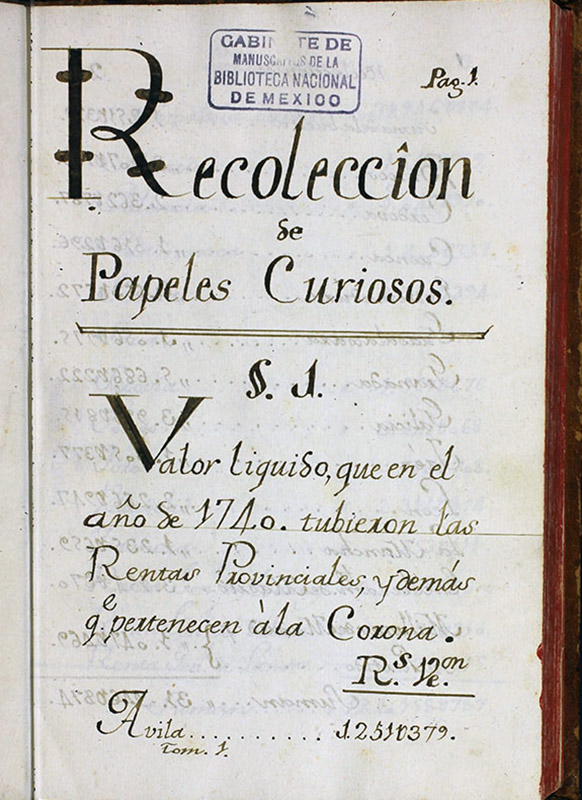 GABINETE DE
MANUSCRITOS DE LA
BIBLIOTECA NACIONAL
DE MEXICO
Pag. 1.
Recoleccîon
de
Papeles Curiosos.
§. 1.
Valor liquido, que en el
año de 1740. tubieron las
Rentas Provinciales, y demás
q.e pertenecen à la Corona.
R.s V.on
Avila.......... 1.251U379.
Tom. 1.